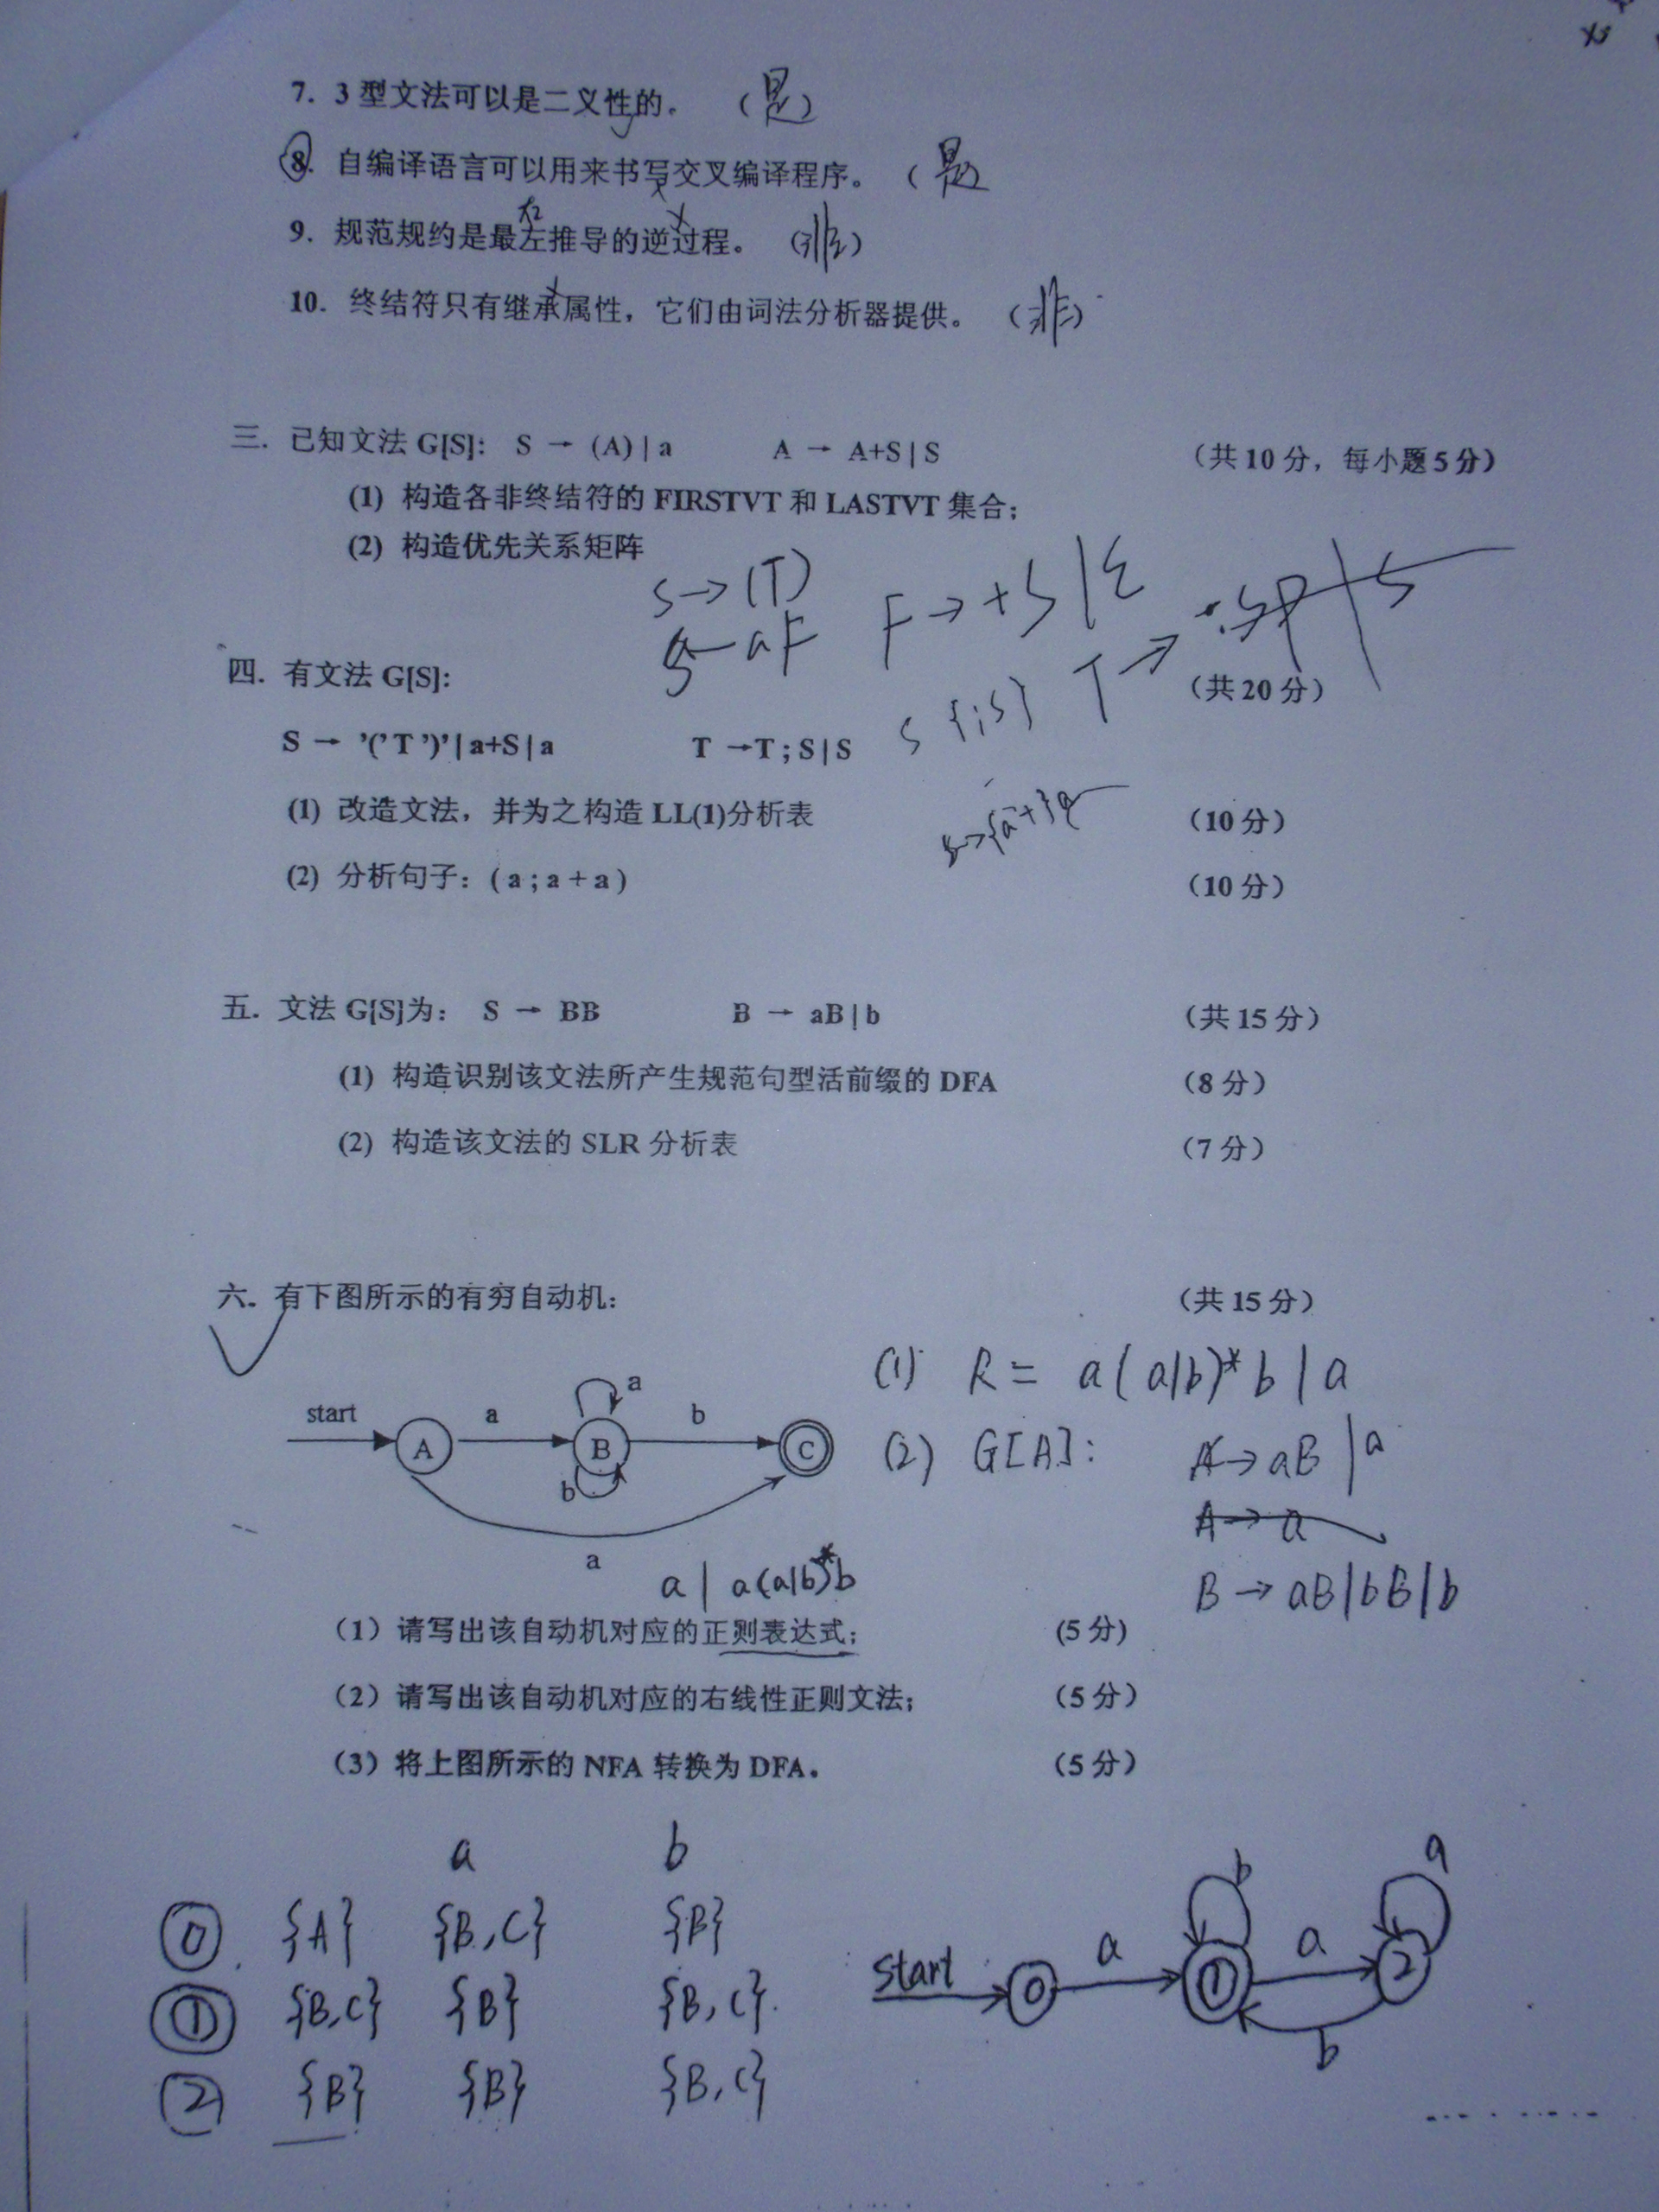 7. 3 型文法可以是二义性的。 (是)
8. 自编译语言可以用来书写交叉编译程序。 (是
右
9. 规范规约是最左推导的逆过程。 (非)
10. 终结符只有继承属性，它们由词法分析器提供。 (非)
三. 已知文法 G[S]: S → (A) | a A → A+S | S (共 10 分，每小题 5 分)
(1) 构造各非终结符的 FIRSTVT 和 LASTVT 集合；
(2) 构造优先关系矩阵
S → (T)
S → aF F → +S | ε
四. 有文法 G[S]: (共 20 分)
S {;S} T →
S → '(' T ')' | a+S | a T → T ; S | S
(1) 改造文法，并为之构造 LL(1)分析表 (10 分)
S → {a+}a
(2) 分析句子：( a ; a + a ) (10 分)
五. 文法 G[S]为: S → BB B → aB | b (共 15 分)
(1) 构造识别该文法所产生规范句型活前缀的 DFA (8 分)
(2) 构造该文法的 SLR 分析表 (7 分)
六. 有下图所示的有穷自动机: (共 15 分)
(1) R = a(a|b)*b | a
start a a b
A B C
b
a
(2) G[A]: A → aB | a
A → a
B → aB | bB | b
a | a(a|b)*b
(1) 请写出该自动机对应的正则表达式； (5 分)
(2) 请写出该自动机对应的右线性正则文法； (5 分)
(3) 将上图所示的 NFA 转换为 DFA。 (5 分)
a b
0 {A} {B,C} {B}
1 {B,C} {B} {B,C}
2 {B} {B} {B,C}
start 0 a 1 a 2
b a
b